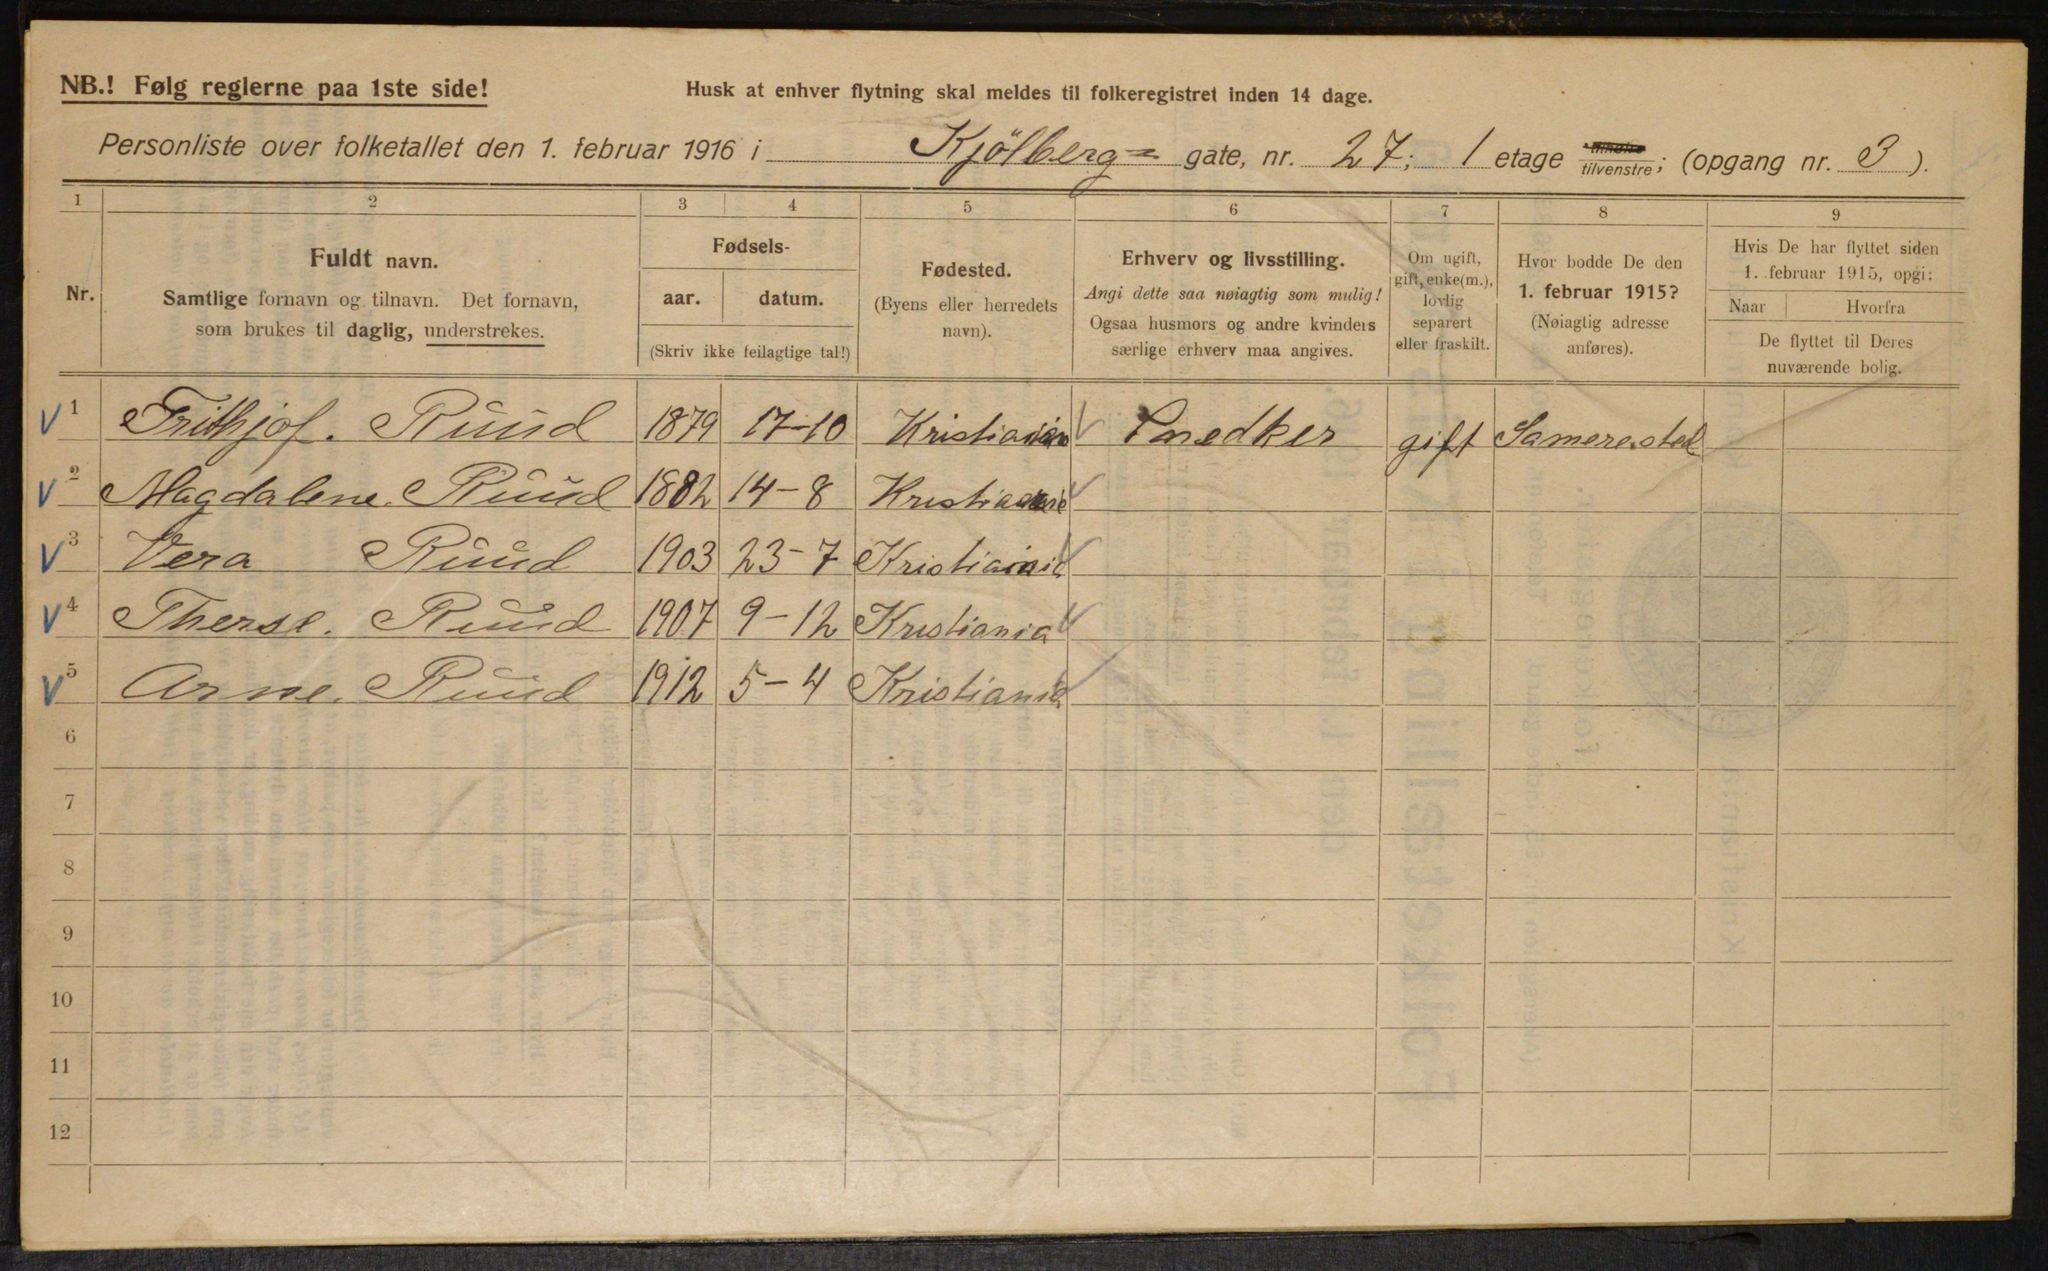 NB.! Følg reglerne paa 1ste side!
Husk at enhver flytning skal meldes til folkeregistret inden 14 dage.
Personliste over folketallet den 1. februar 1916 i Kjölberg= gate, nr. 27; 1 etage tilvenstre; (opgang nr. 3).
1 2 3 4 5 6 7 8 9
Nr.
Fuldt navn.
Samtlige fornavn og tilnavn. Det fornavn,
som brukes til daglig, understrekes.
Fødsels-
aar. datum.
(Skriv ikke feilagtige tal!)
Fødested.
(Byens eller herredets
navn).
Erhverv og livsstilling.
Angi dette saa nøiagtig som mulig!
Ogsaa husmors og andre kvinders
særlige erhverv maa angives.
Om ugift,
gift, enke(m.),
lovlig
separert
eller fraskilt.
Hvor bodde De den
1. februar 1915?
(Nøiagtig adresse
anføres).
Hvis De har flyttet siden
1. februar 1915, opgi:
Naar Hvorfra
De flyttet til Deres
nuværende bolig.
1 Frithjof. Ruud 1879 17-10 Kristiania Snedker gift Samme sted
2 Magdalene Ruud 1882 14-8 Kristiania
3 Vera Ruud 1903 23-7 Kristiania
4 Therse. Ruud 1907 9-12 Kristiania
5 Arne. Ruud 1912 5-4 Kristiania
6
7
8
9
10
11
12